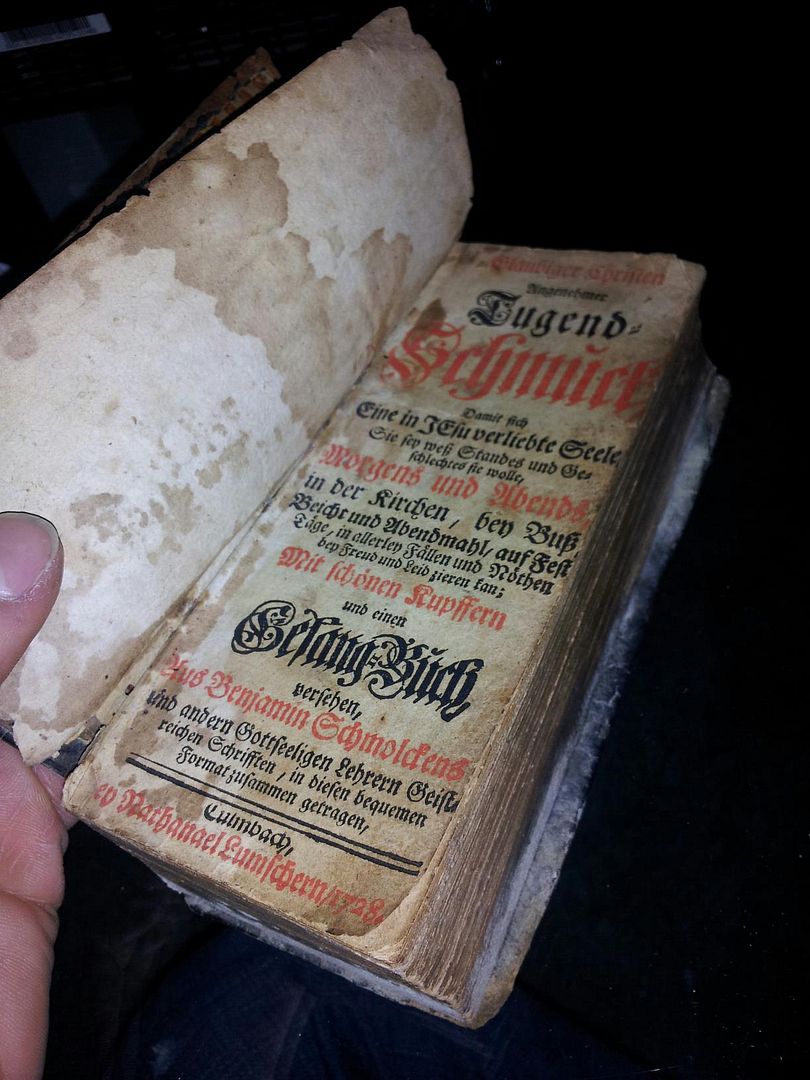 Glaubiger Christen
Angenehmer
Tugend-
Schmuck,
Damit sich
Eine in JEsu verliebte Seele,
Sie sey weß Standes und Ge-
schlechtes sie wolle,
Morgens und Abends,
in der Kirchen, bey Buß,
Beicht und Abendmahl, auf Fest
Täge, in allerley Fällen und Nöthen
bey Freud und Leid zieren kan;
Mit schönen Kupffern
und einen
Gesang-Buch
versehen,
Aus Benjamin Schmolckens
und andern Gottseeligen Lehrern Geist-
reichen Schrifften, in diesen bequemen
Format zusammen getragen,
Culmbach,
ey Nathanael Lumschern, 1728.